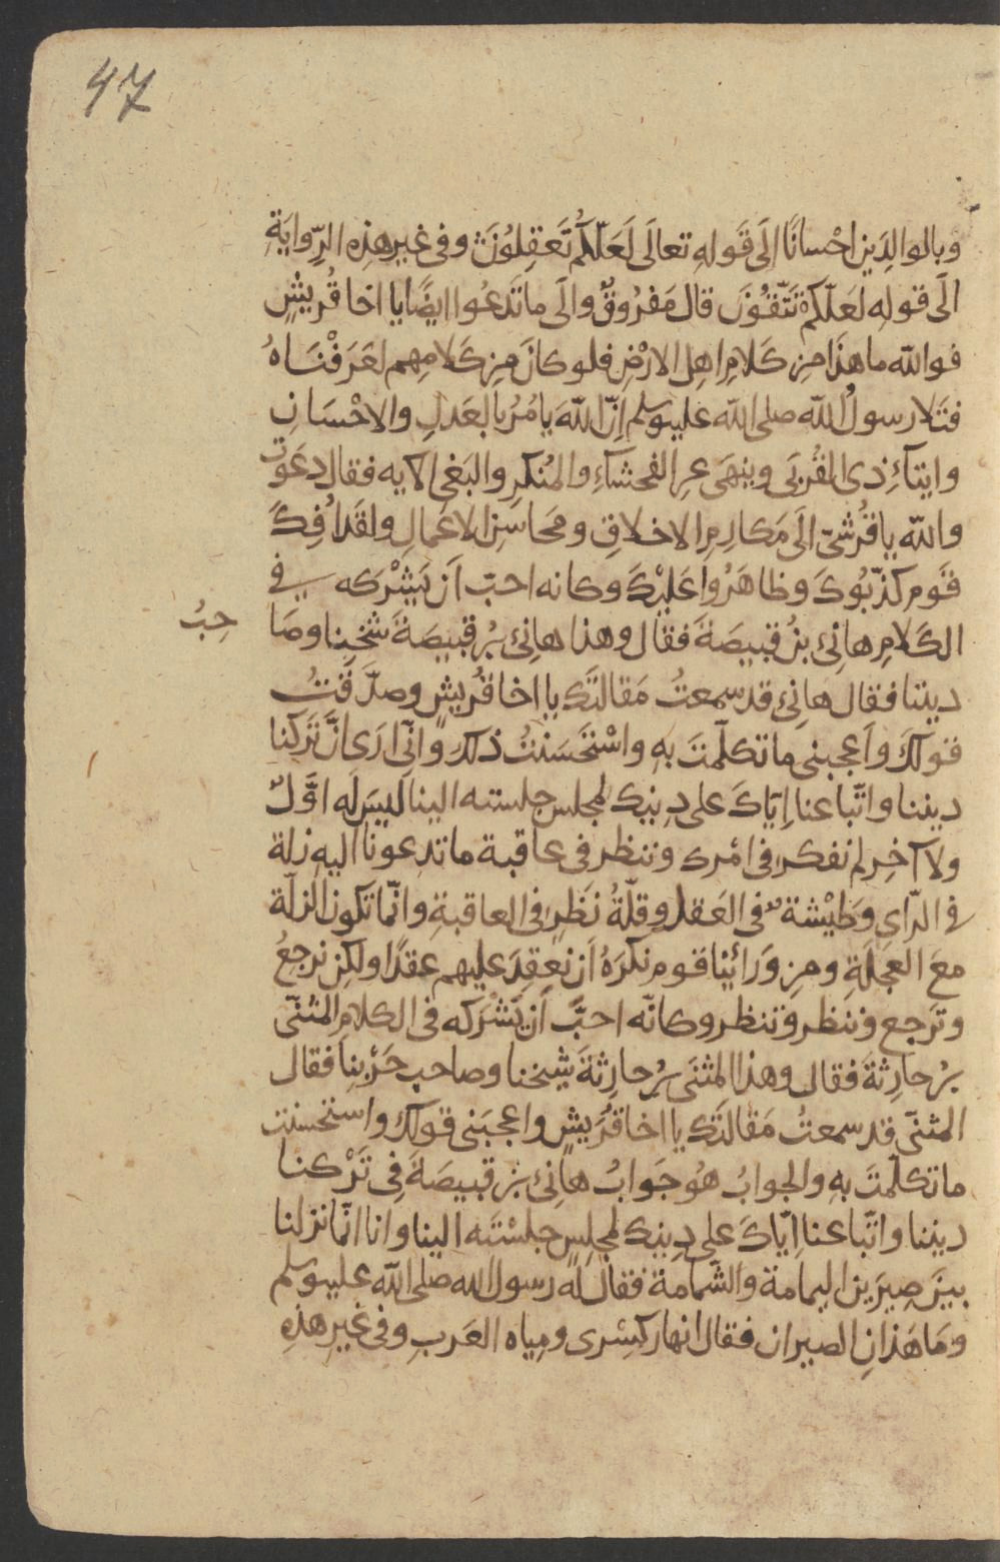 47
وبالوالِدَين احْسانًا الَى قَولهِ تعالَى لَعَلّكُم تَعقِلوُنَ وفى غيرِهذِه الرِّوايَةِ
الَى قوله لعَلّكم تَتّقوُنَ قال مَفرُوقٌ والَى ما تَدعُوا ايضًا يا اخا قُريشٍ
فوالله ما هذَا مِن كَلامِ اهلِ الارْضِ فلو كانَ مِن كَلامِهم لعَرَفْنَاهُ
فتَلا رسولُ الله صلى الله عليه وسلم اِنّ اللهَ يامُرُ بالعَدلِ والاحْسَانِ
وايتآءِ ذى القُربَى وينهَى عنِ الفحشآءِ والمُنكرِ والبَغى الايه فقال دعَوتَ
والله يا قُرشىّ الَى مَكارِمِ الاخلاقِ ومحَاسِنِ الاعمالِ ولقَد اُفِكَ
قَوم كذّبُوكَ وظاهَرُوا عَليْكَ وكانه احبّ اَن يَشْرَكه في
الكَلامِ هانِئ بنُ قبيصَةَ فقال وهذا هانِئ بنُ قبيصَةَ شَيخُنا وصَا
حِبُ
ديننا فقال هانِئ قد سمعتُ مَقالتَك يا اخا قُريشٍ وصدَّقتُ
قولكَ واَعجبنى ما تكلّمتَ بهِ واسْتَحسَنتُ ذلك وانّى ارَى انَّ تَركَنا
ديننا واتّباعنا اِيّاكَ على دِينِك لمجلس جلسته الينا ليسَ لَه اوّلٌ
ولا آخِر لم نفكر فى امرك وننظر فى عاقبة ما تدعونا اليهِ زلة
في الرّاى وَطَيْشة فى العَقل وقلّةُ نَظرٍ فى العاقبةِ وانّما تكون الزلّة
معَ العَجلَةِ ومِن وَرائِنا قوم نكرَهُ اَن نعقِدَ عليهم عقدًا ولكِن نرجعُ
وتَرجع وننظر وتنظر وكانّه احبَّ اَن يَشْرَكه فى الكلامِ المثنّى
بنُ حارِثةَ فقال وهذا المثنَى بنُ حارِثةَ شيخنا وصاحب حَرْبِنا فقال
المثنّى قد سمعتُ مَقالتَك يا اخا قُرَيشٍ واعجبَنى قولك واستحسنت
ما تكلّمتَ بهِ والجوابُ هُو جَوابُ هانِئ بن قبيصَةَ فِى تَرْكنا
ديننا واتّباعنا ايّاكَ على دِينِك لمجلِسٍ جلسْتَه الينا وانا انّما نزلنا
بينَ صِيرَين اليمامة والشّمامة فقال له رسول الله صلى الله عليه وسلم
ومَا هَذانِ الصيران فقال انهار كِسْرى ومِياه العَربِ وفى غيرِ هذِهِ